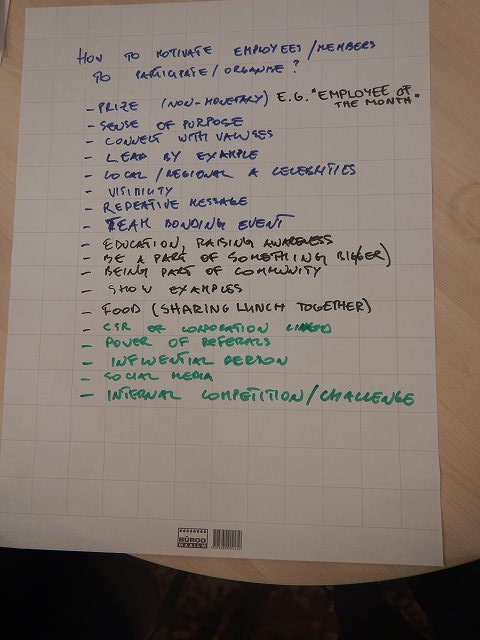 HOW TO MOTIVATE EMPLOYEES/MEMBERS
TO PARTICIPATE/ORGANISE?
- PRIZE (NON-MONETARY) E.G. "EMPLOYEE OF
THE MONTH"
- SENSE OF PURPOSE
- CONNECT WITH VALUSES
- LEAD BY EXAMPLE
- LOCAL/REGIONAL A CELEBRITIES
- VISIBILITY
- REPEATIVE MESSAGE
- TEAM BONDING EVENT
- EDUCATION, RAISING AWARENESS
- BE A PART OF SOMETHING BIGGER)
- BEING PART OF COMMUNITY
- SHOW EXAMPLES
- FOOD (SHARING LUNCH TOGETHER)
- CSR OF CORPORATION
- POWER OF REFERALS
- INFLUENTIAL PERSON
- SOCIAL MEDIA
- INTERNAL COMPETITION/CHALLENGE
BÜROO